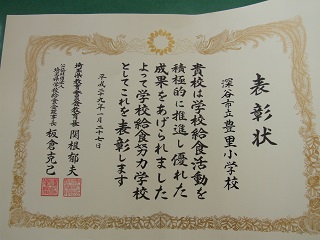 表彰状
深谷市立豊里小学校
貴校は学校給食活動を
積極的に推進し優れた
成果をあげられました
よって学校給食努力学校
としてこれを表彰します
平成二十九年一月二十七日
埼玉県教育委員会教育長 関根郁夫
公益財団法人
埼玉県学校給食会理事長 板倉克己